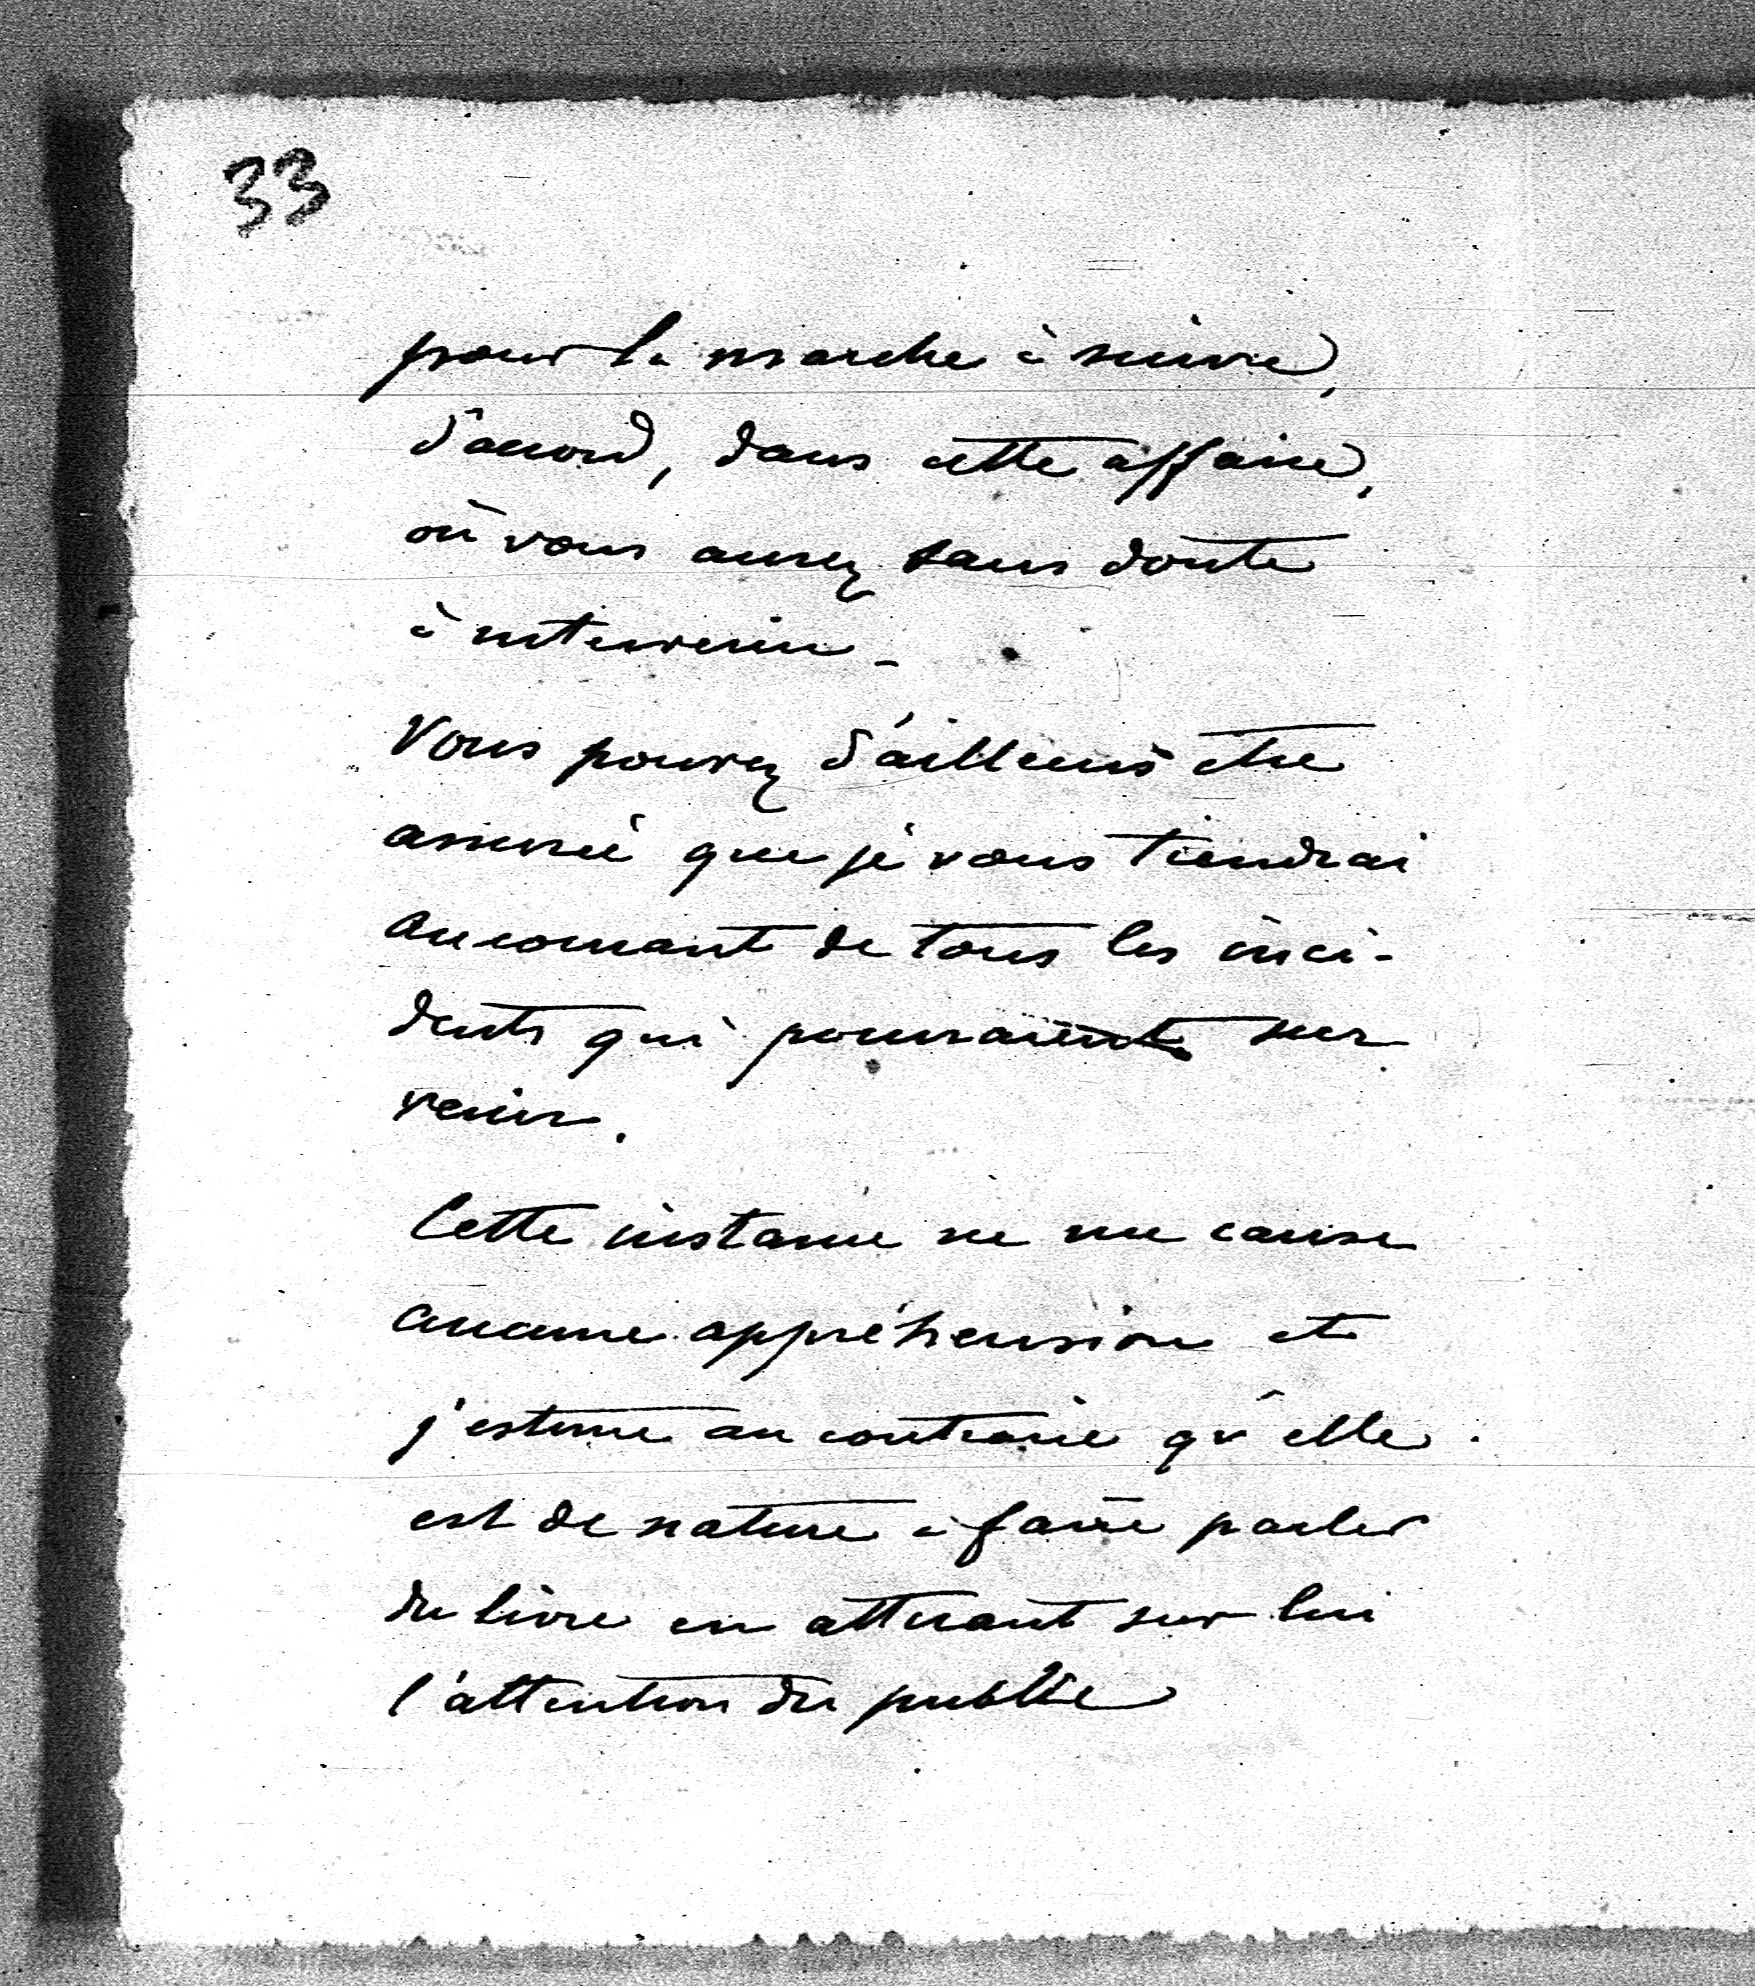 33
pour la marche à suivre,
d'accord, dans cette affaire,
où vous aurez sans doute
à intervenir -
Vous pouvez d'ailleurs être
assurée que je vous tiendrai
au courant de tous les inci-
dents qui pourraient sur
venir.
Cette instance ne me cause
aucune appréhension et
j'estime au contraire qu'elle
est de nature à faire parler
du livre en attirant sur lui
l'attention du public